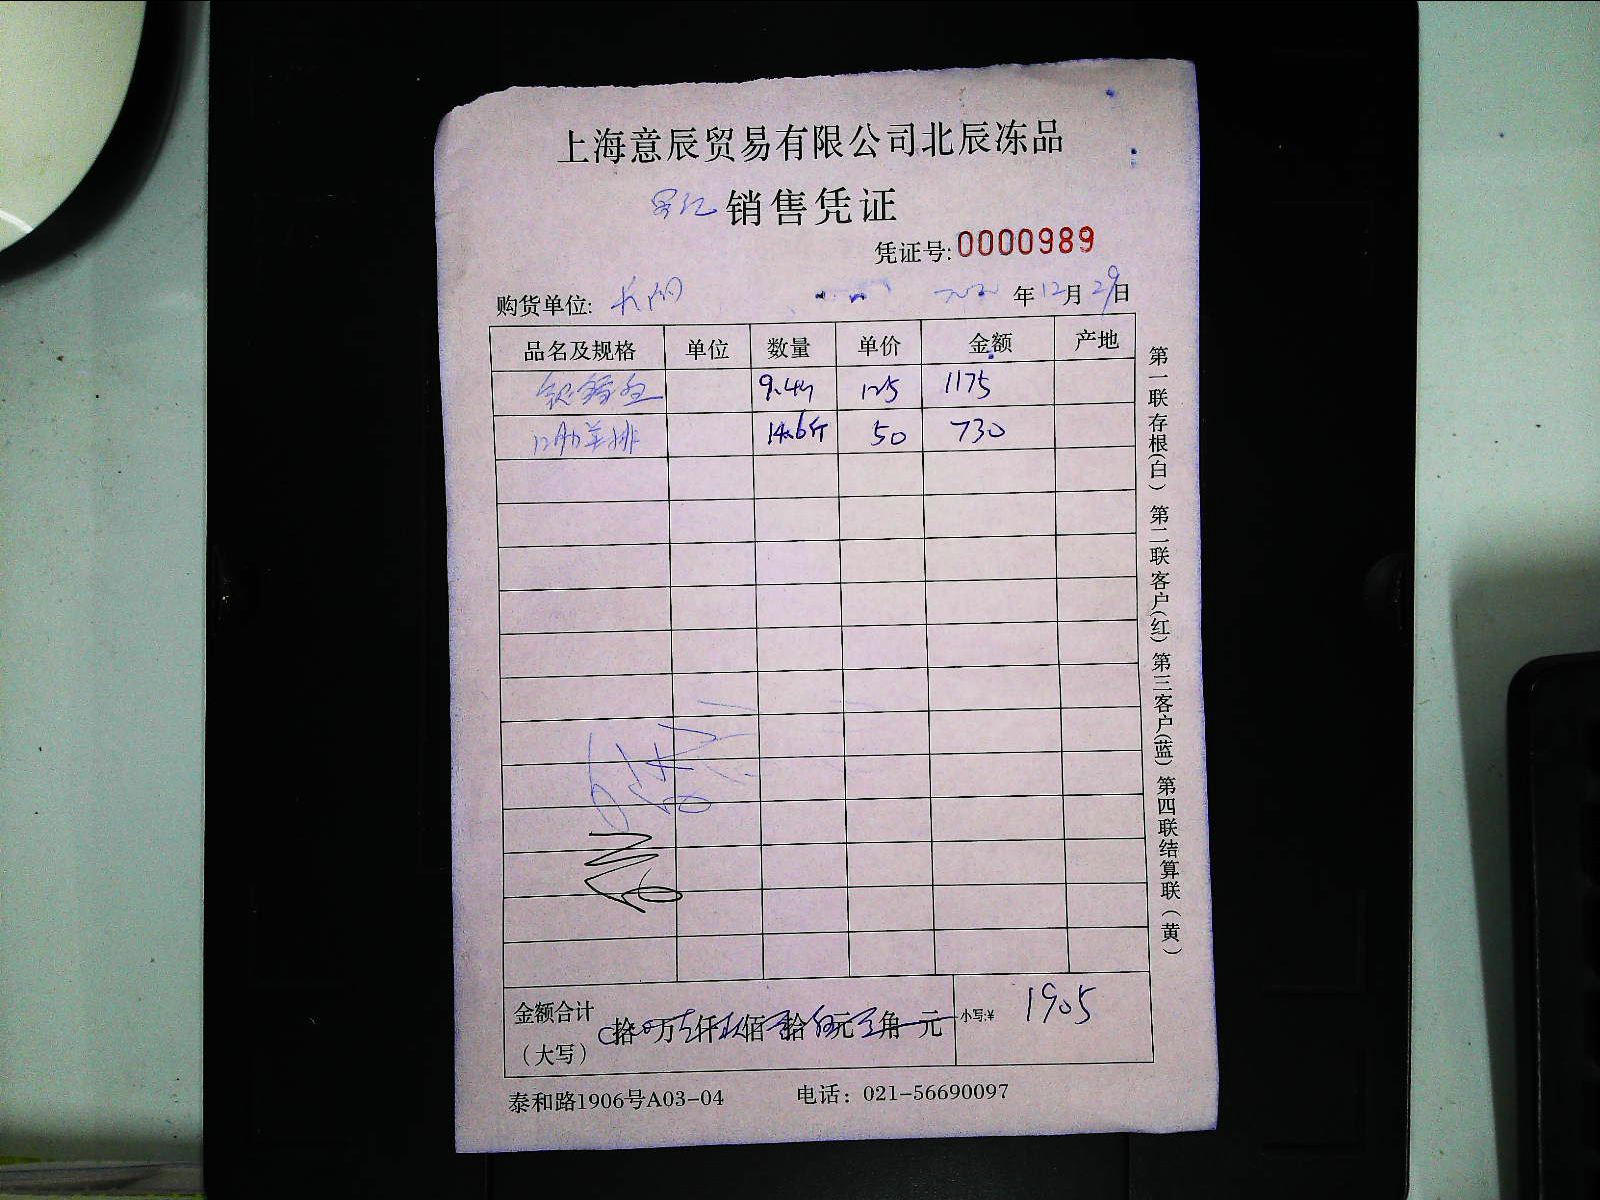 上海意辰贸易有限公司北辰冻品
销售凭证
凭证号:0000989
购货单位: 年12月29日
品名及规格 单位 数量 单价 金额 产地
9.4斤 125 1175
12肋羊排 14.6斤 50 730
金额合计 拾万仟佰拾元角元 小写:¥ 1905
（大写）
泰和路1906号A03-04 电话：021-56690097
第一联存根(白) 第二联客户(红) 第三客户(蓝) 第四联结算联(黄)